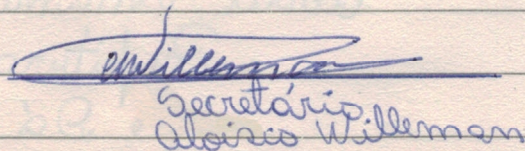 Willeman
Secretário
Aloisco Willeman